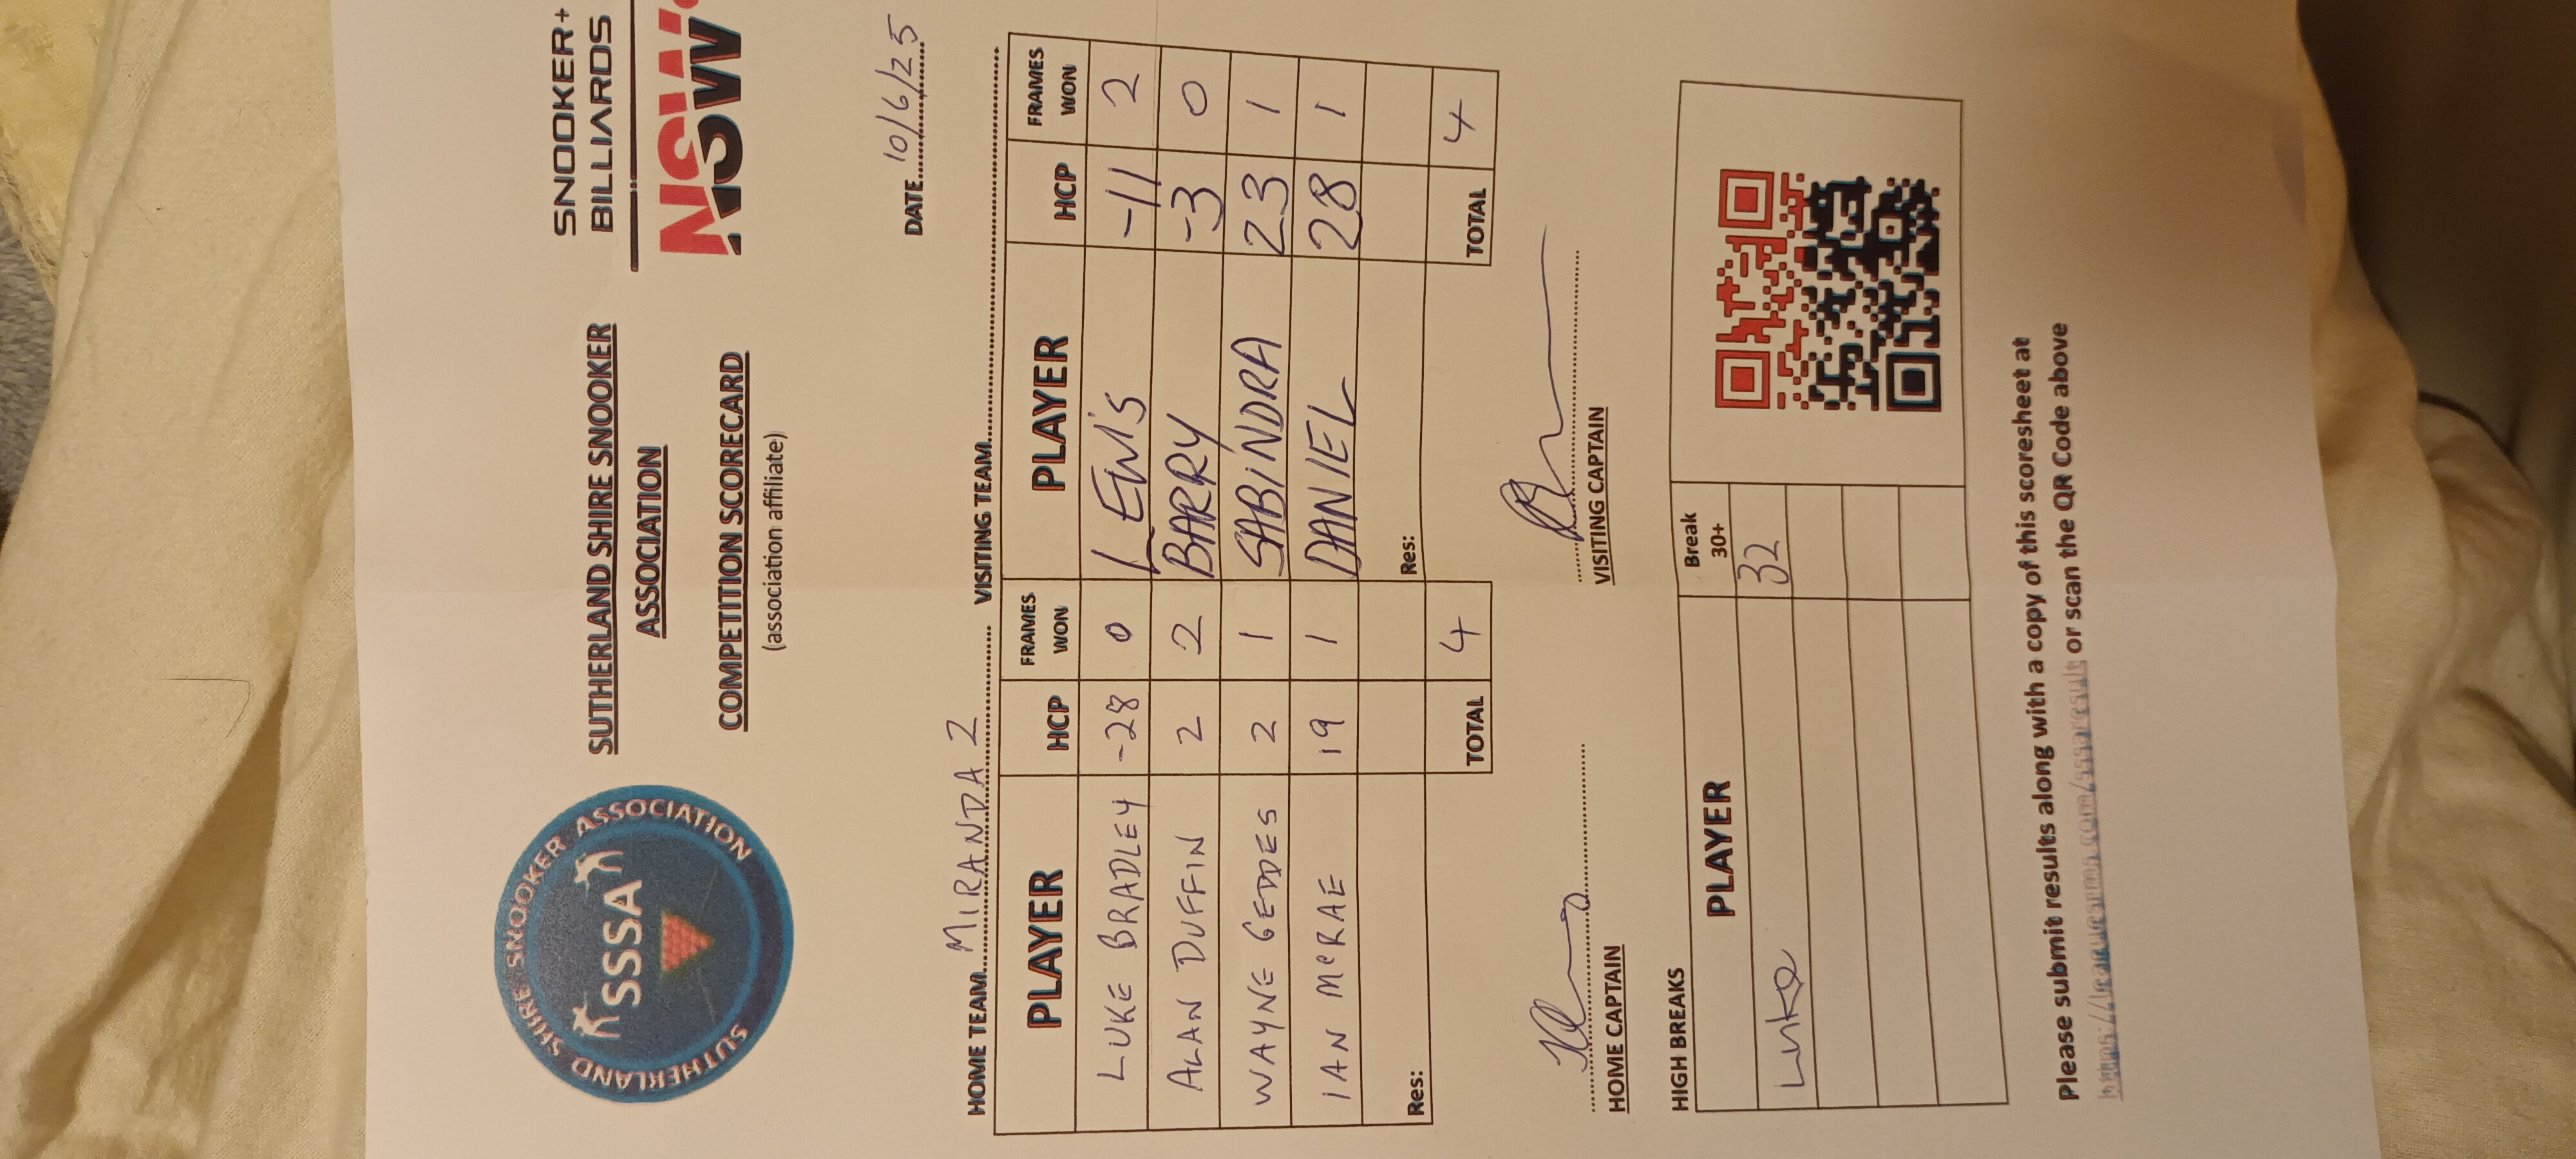 SUTHERLAND SHIRE SNOOKER ASSOCIATION
SSSA
SUTHERLAND SHIRE SNOOKER
ASSOCIATION
COMPETITION SCORECARD
(association affiliate)
SNOOKER+
BILLIARDS
NSW
DATE 10/6/25
HOME TEAM MIRANDA 2 VISITING TEAM
PLAYER HCP FRAMES WON PLAYER HCP FRAMES WON
LUKE BRADLEY -28 0 LEWIS -11 2
ALAN DUFFIN 2 2 BARRY -3 0
WAYNE GEDDES 2 1 SABINDRA 23 1
IAN McRAE 19 1 DANIEL 28 1
Res: Res:
TOTAL 4 TOTAL 4
HOME CAPTAIN VISITING CAPTAIN
HIGH BREAKS
PLAYER Break 30+
Luke 32
Please submit results along with a copy of this scoresheet at
or scan the QR Code above